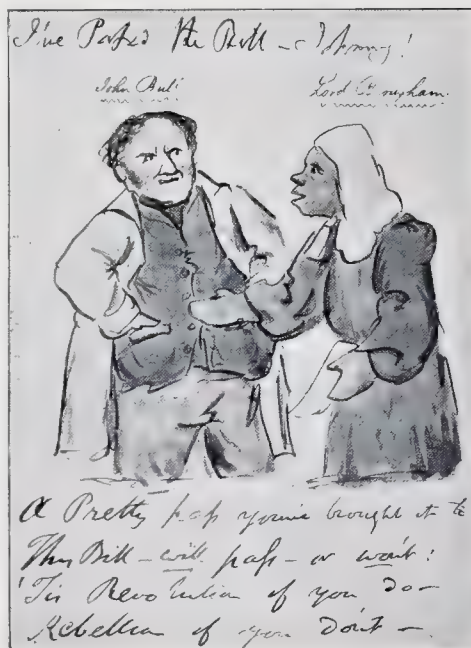 I've Pass'd the Bill – Johnny!
John Bull
Lord Brougham.
A Pretty pass you've brought it to
This Bill – will pass – or won't!
'Tis Revolution if you do –
Rebellion if you don't –